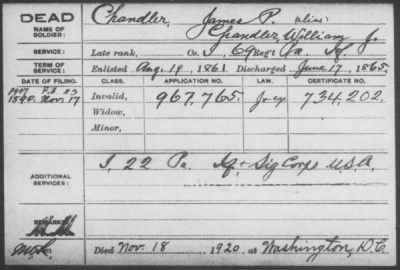 DEAD
NAME OF SOLDIER:
Chandler, James P. (alias)
Chandler, William J.
SERVICE:
Late rank, Co. I, 69 Reg't Pa. Inf
TERM OF SERVICE:
Enlisted Aug. 19, 1861 Discharged June 17, 1865.
DATE OF FILING. CLASS. APPLICATION NO. LAW. CERTIFICATE NO.
1907
1890. Nov. 17 Invalid, 967,765. 734,202.
Widow,
Minor,
ADDITIONAL SERVICES:
I, 22 Pa. Inf + Sig Corps U.S.A.
REMARKS:
Died Nov. 18 1920, at Washington, D.C.